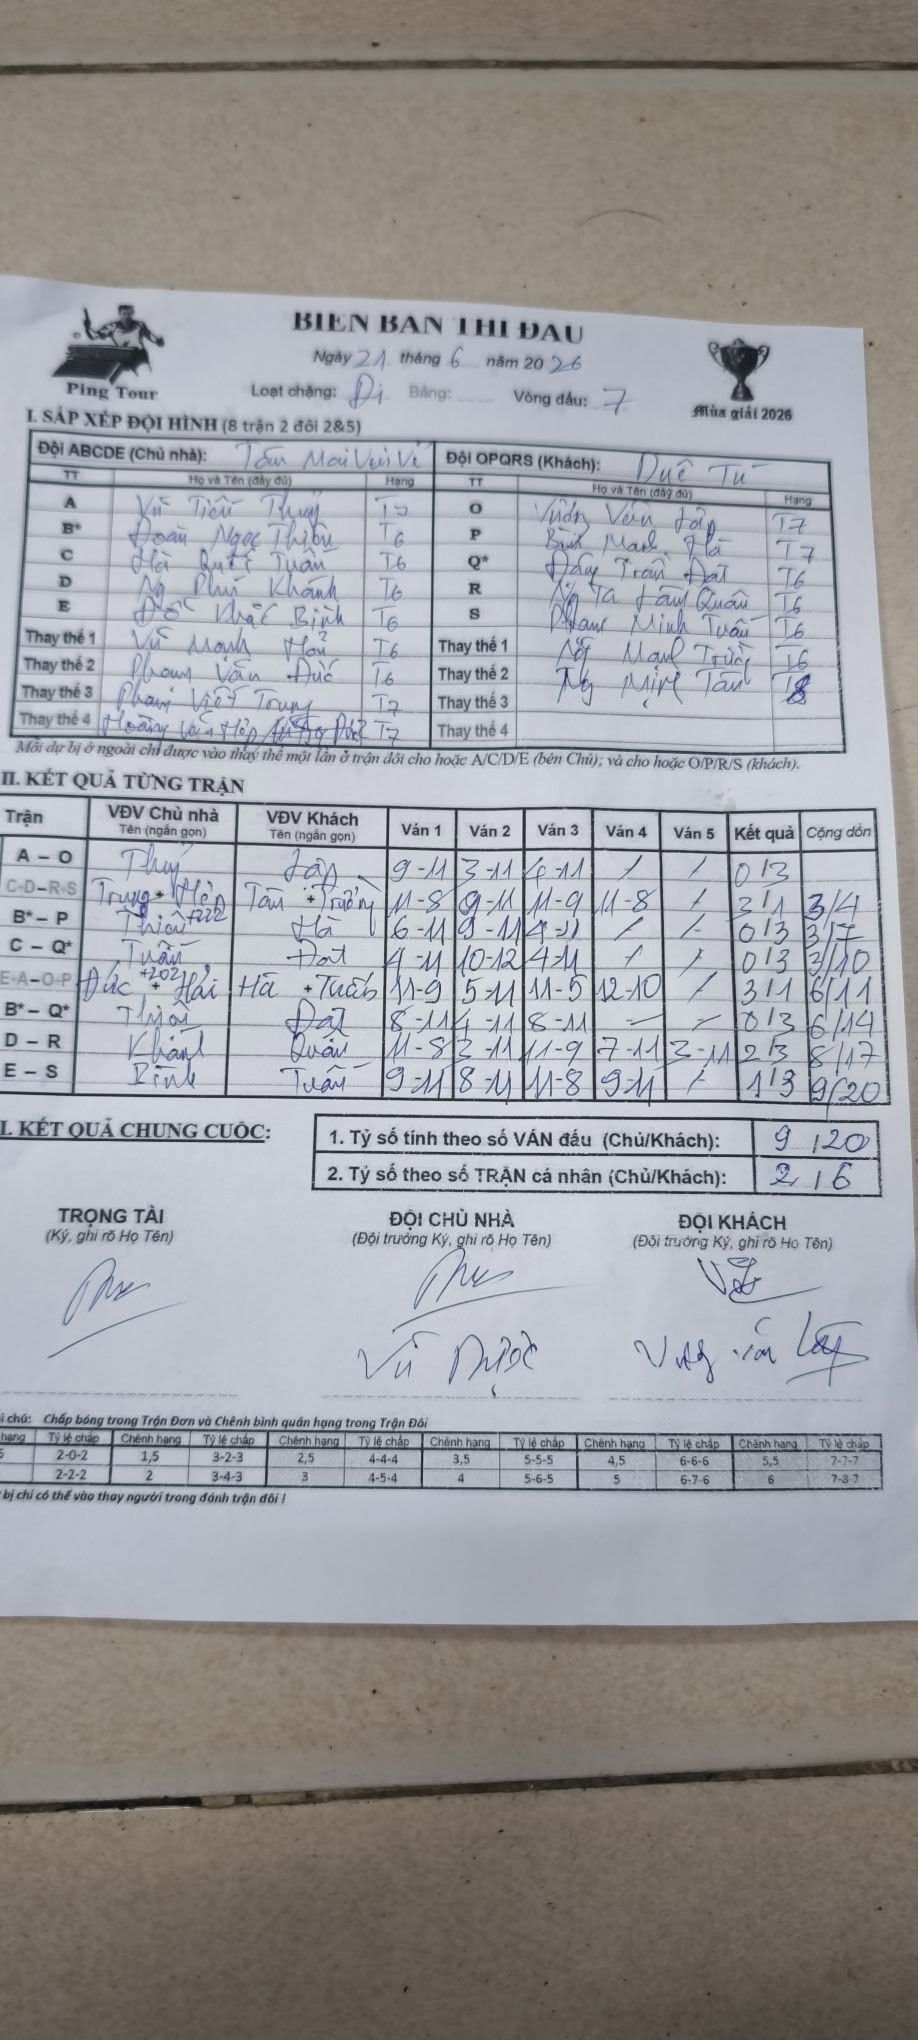 BIÊN BẢN THI ĐẤU
Ngày 21 tháng 6 năm 2026
Ping Tour
Loại chặng: Đi Bảng: Vòng đấu: 7
Mùa giải 2026
I. SẮP XẾP ĐỘI HÌNH (8 trận 2 đôi 2&5)
Đội ABCDE (Chủ nhà): Tân Mai Vui Vẻ Đội OPQRS (Khách): Duê Tú
TT Họ và Tên (đầy đủ) Hạng TT Họ và Tên (đầy đủ) Hạng
A Vũ Tiến Thủy O Văn Lập T7
B* Đoàn Ngọc Thiện T6 P Mạnh Hà T7
C Hà Quốc Tuấn T6 Q* Đặng Trần Đạt T6
D Ng Phú Khánh T6 R Ng Tạ Quân T6
E Đỗ Khắc Bình T6 S Phạm Minh Tuấn T6
Thay thế 1 Vũ Mạnh Hải T6 Thay thế 1 Ng Mạnh T6
Thay thế 2 Phạm Văn Đức T6 Thay thế 2 Ng Minh Tân
Thay thế 3 Phạm Việt Trung T7 Thay thế 3
Thay thế 4 Hoàng Văn Hép T7 Thay thế 4
Mỗi dự bị ở ngoài chỉ được vào thay thế một lần ở trận đôi cho hoặc A/C/D/E (bên Chủ); và cho hoặc O/P/R/S (khách).
II. KẾT QUẢ TỪNG TRẬN
Trận VĐV Chủ nhà VĐV Khách Ván 1 Ván 2 Ván 3 Ván 4 Ván 5 Kết quả Cộng dồn
Tên (ngắn gọn) Tên (ngắn gọn)
A – O Thủy Lập 9-11 3-11 6-11 / / 0/3
C-D–R-S Trung + Hép Tân + 11-8 9-11 11-9 11-8 / 3/1 3/4
B* – P Thiện Hà 6-11 9-11 4-11 / / 0/3 3/7
C – Q* Tuấn Đạt 4-11 10-12 4-11 / / 0/3 3/10
E-A–O-P Đức + Hải Hà + Tuấn 11-9 5-11 11-5 12-10 / 3/1 6/11
B* – Q* Thiện Đạt 8-11 4-11 8-11 – – 0/3 6/14
D – R Khánh Quân 11-8 3-11 11-9 7-11 3-11 2/3 8/17
E – S Bình Tuấn 9-11 8-11 11-8 9-11 / 1/3 9/20
I. KẾT QUẢ CHUNG CUỘC:
1. Tỷ số tính theo số VÁN đấu (Chủ/Khách): 9/20
2. Tỷ số theo số TRẬN cá nhân (Chủ/Khách): 2/6
TRỌNG TÀI ĐỘI CHỦ NHÀ ĐỘI KHÁCH
(Ký, ghi rõ Họ Tên) (Đội trưởng Ký, ghi rõ Họ Tên) (Đội trưởng Ký, ghi rõ Họ Tên)
Vũ Được Văn Lập
i chú: Chấp bóng trong Trận Đơn và Chênh bình quân hạng trong Trận Đôi
hạng Tỷ lệ chấp Chênh hạng Tỷ lệ chấp Chênh hạng Tỷ lệ chấp Chênh hạng Tỷ lệ chấp Chênh hạng Tỷ lệ chấp Chênh hạng Tỷ lệ chấp
5 2-0-2 1,5 3-2-3 2,5 4-4-4 3,5 5-5-5 4,5 6-6-6 5,5 7-7-7
2-2-2 2 3-4-3 3 4-5-4 4 5-6-5 5 6-7-6 6 7-8-7
bị chỉ có thể vào thay người trong đánh trận đôi !